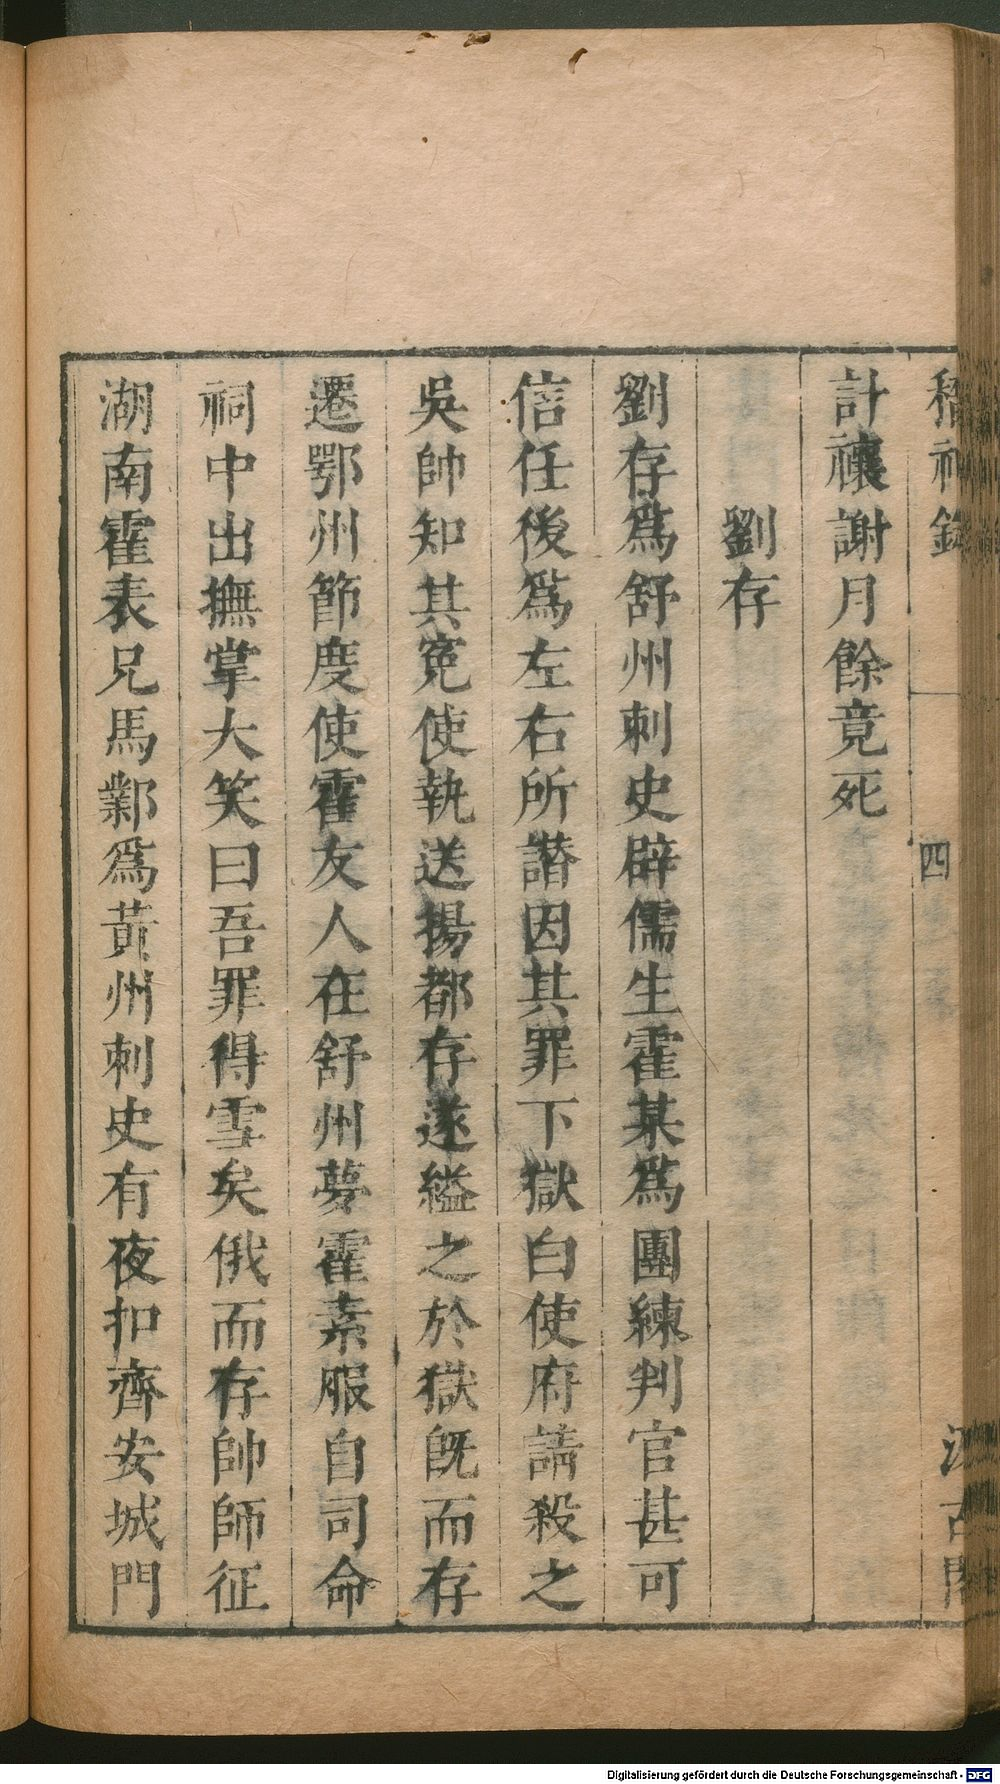 稽神錄
四
汲古閣
計禳謝月餘竟死
劉存
劉存爲舒州刺史辟儒生霍某爲團練判官甚可
信任後爲左右所譖因其罪下獄白使府請殺之
吳帥知其寃使執送揚都存遂縊之於獄旣而存
遷鄂州節度使霍友人在舒州夢霍素服自司命
祠中出撫掌大笑曰吾罪得雪矣俄而存帥師征
湖南霍表兄馬鄴爲黃州刺史有夜扣齊安城門
Digitalisierung gefördert durch die Deutsche Forschungsgemeinschaft - DFG